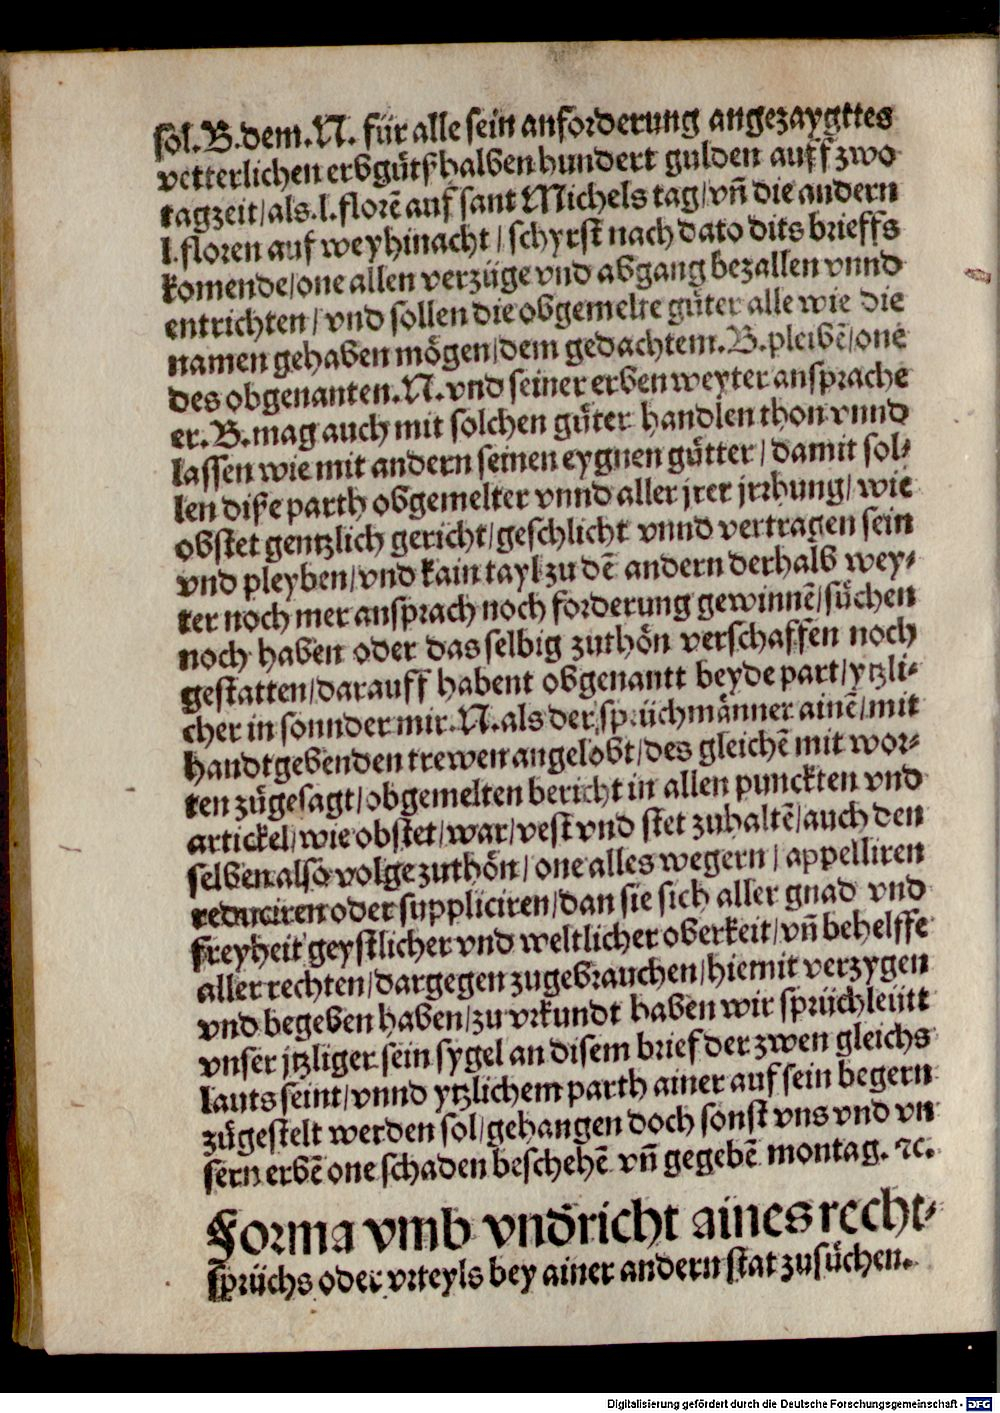 sol. B. dem. N. für alle sein anforderung angezaygttes
vetterlichen erbgůtß halben hundert gulden auff zwo
tagzeit / als .l. florē auf sant Michels tag / vn̄ die andern
l. floren auf weyhinacht / schyrst nach dato dits brieffs
komende / one allen verzüge vnd abgang bezallen vnnd
entrichten / vnd sollen die obgemelte gůter alle wie die
namen gehaben mögen / dem gedachtem. B. pleibē / one
des obgenanten. N. vnd seiner erben weyter ansprache
er. B. mag auch mit solchen gůter handlen thon vnnd
lassen wie mit andern seinen eygnen gůtter / damit sol-
len diße parth obgemelter vnnd aller jrer jrrhung / wie
obstet gentzlich gericht / geschlicht vnnd vertragen sein
vnd pleyben / vnd kain tayl zu dē andern derhalb wey-
ter noch mer ansprach noch forderung gewinnē / sůchen
noch haben oder das selbig zuthön verschaffen noch
gestatten / darauff habent obgenantt beyde part / ytzli-
cher in sonnder mir. N. als der sprüchmänner ainē / mit
handtgebenden trewen angelobt / des gleichē mit wor-
ten zůgesagt / obgemelten bericht in allen punckten vnd
artickel / wie obstet / war / vest vnd stet zuhaltē / auch den
selben also volge zuthön / one alles wegern / appelliren
reduciren oder suppliciren / dan sie sich aller gnad vnd
freyheit geystlicher vnd weltlicher oberkeit / vn̄ behelffe
aller rechten / dargegen zugebrauchen / hiemit verzygen
vnd begeben haben / zu vrkundt haben wir sprüchleütt
vnser jtzliger sein sygel an disem brief der zwen gleichs
lauts seint / vnnd ytzlichem parth ainer auf sein begern
zůgestelt werden sol / gehangen doch sonst vns vnd vn
sern erbē one schaden beschehē vn̄ gegebē montag. ⁊c.
Forma vmb vndr̄icht aines recht-
sprüchs oder vrteyls bey ainer andern stat zusůchen.
Digitalisierung gefördert durch die Deutsche Forschungsgemeinschaft - DFG